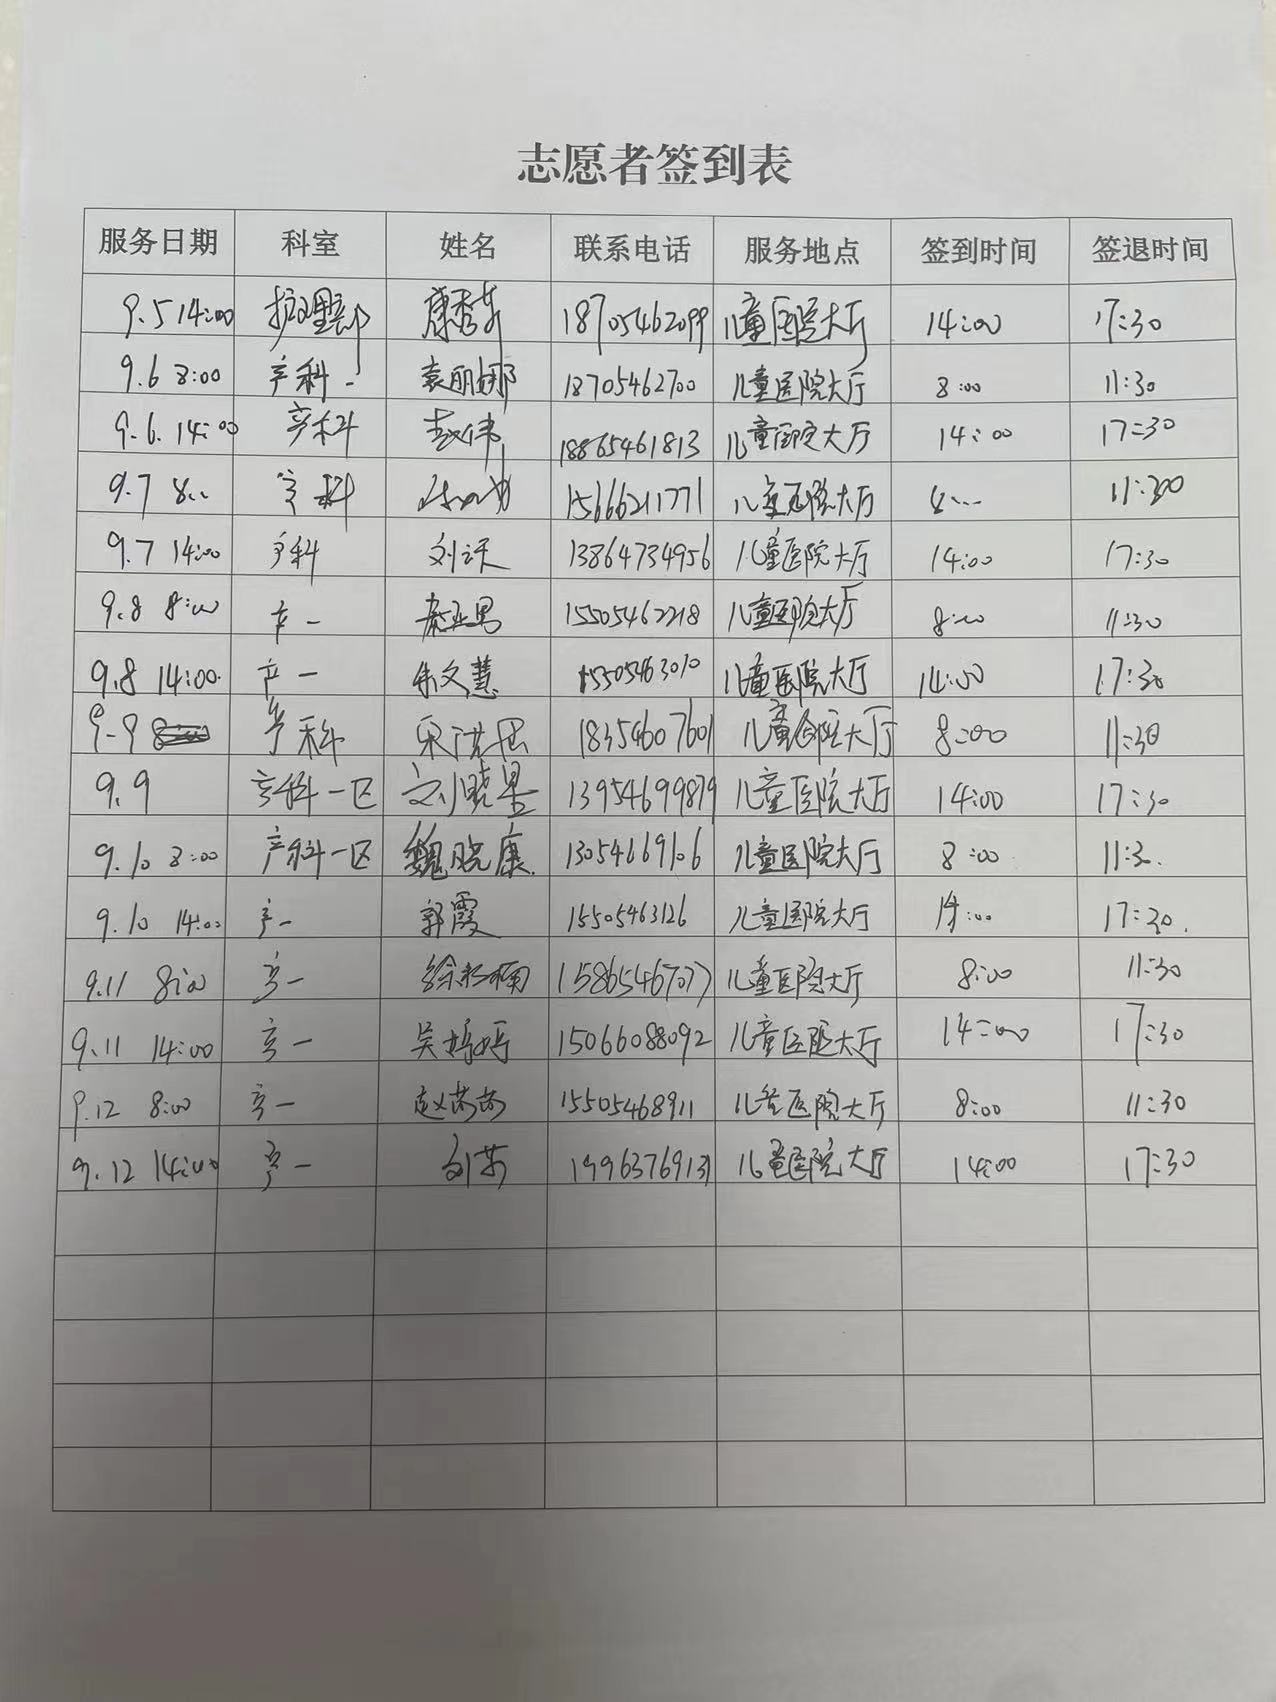 志愿者签到表
服务日期 科室 姓名 联系电话 服务地点 签到时间 签退时间
9.5 14:00 护理部 康秀芬 18705462099 儿童医院大厅 14:00 17:30
9.6 8:00 产科一 袁丽娜 18705462700 儿童医院大厅 8:00 11:30
9.6. 14:00 产科 赵伟 18865461813 儿童医院大厅 14:00 17:30
9.7 8:00 产科 15666211771 儿童医院大厅 8:00 11:30
9.7 14:00 产科 刘沃 13864734956 儿童医院大厅 14:00 17:30
9.8 8:00 产一 15505462218 儿童医院大厅 8:00 11:30
9.8 14:00. 产一 朱文慧 15505463010 儿童医院大厅 14:00 17:30
9-9 产科 18354607601 儿童医院大厅 8:00 11:30
9.9 产科一区 刘晓昱 13954699879 儿童医院大厅 14:00 17:30
9.10 8:00 产科一区 魏晓康 13054669106 儿童医院大厅 8:00 11:30.
9.10 14:00 产一 郭霞 15505463126 儿童医院大厅 14:00 17:30.
9.11 8:00 产一 15865467077 儿童医院大厅 8:00 11:30
9.11 14:00 产一 吴婷婷 15066088092 儿童医院大厅 14:00 17:30
9.12 8:00 产一 赵苏苏 15505468911 儿童医院大厅 8:00 11:30
9.12 14:00 产一 刘芬 19963769131 儿童医院大厅 14:00 17:30